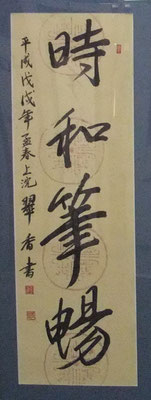 時和筆暢
平成戊戌年孟春上浣 翠香書